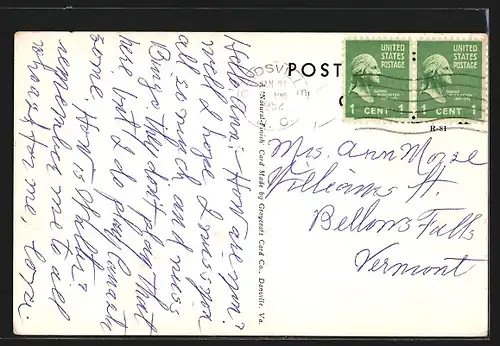 Hello Ann: How are you?
well I hope. I miss you
all so much and miss
Bingo they don't play that
here but I do play Canasta
some. How is Walter?
remember me to all
who ask for me,
POST
UNITED STATES POSTAGE
1 CENT 1
UNITED STATES POSTAGE
1 CENT 1
R-81
1952
A "Natural-Finish" Card Made by Graycraft Card Co., Danville, Va.
Mrs. Ann Morse
Williams St.
Bellows Falls
Vermont